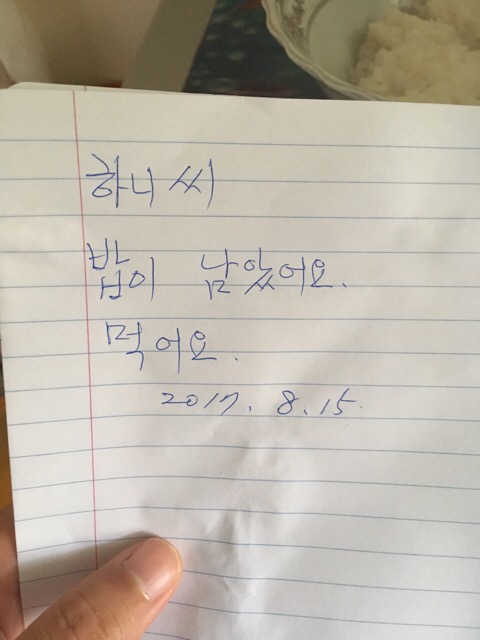 하니 씨
밥이 남았어요.
먹어요.
2017. 8. 15.